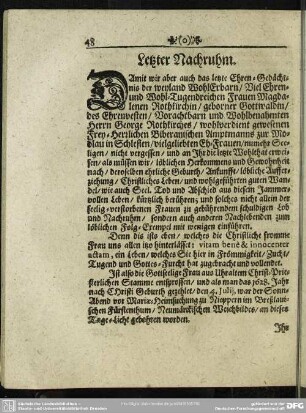 48
(o)
Letzter Nachruhm.
DAmit wir aber auch das letzte Ehren-Gedächt-
nis der weyland WohlErbarn, Viel Ehren-
und Wohl-Tugendreichen Frauen Magda-
lenen Rothkirchin, geborner Gottwaldin,
des Ehrenvesten, Vorachtbarn und Wohlbenahmten
Herrn George Rothkirches, wohlverdient gewesenen
Frey-Herrlichen Bibranischen Hauptmanns zur Mo-
dlau in Schlesien, vielgeliebten Eh-Frauen, nunmehr See-
ligen, nicht vergessen, und an Ihr die letzte Wohlthat erwei-
sen, als müssen wir, löblichen Herkommens und Gewohnheit
nach, deroselben ehrliche Geburth, Ankunfft, löbliche Auffer-
ziehung, Christliches Leben, und wohlgeführten guten Wan-
del, wie auch Seel. Tod und Abschied aus diesem Jammer-
vollen Leben, kürtzlich berühren, und solches nicht allein der
seelig-verstorbenen Frauen zu gebührendem schuldigen Lob
und Nachruhm, sondern auch anderen Nachlebenden zum
löblichen Folg-Exempel mit wenigen einführen.
Denn diß ists eben, welches die Christliche fromme
Frau uns allen itzo hinterläßet: vitam benè & innocenter
actam, ein Leben, welches Sie hier in Frömmigkeit, Zucht,
Tugend und Gottes-Furcht hat zugebracht und vollendet.
Ist also die Gottselige Frau aus Uhraltem Christ-Prie-
sterlichen Stamme entsprossen, und als man das 1628. Jahr
nach Christi Geburth gezehlet, den 4. Julij, war der Sonn-
Abend vor Mariæ-Heimsuchung zu Nieppern im Breßlaui-
schen Fürstenthum, Neumärckischen Weichbildes, an dieses
Tages-Licht gebohren worden.
Ihr